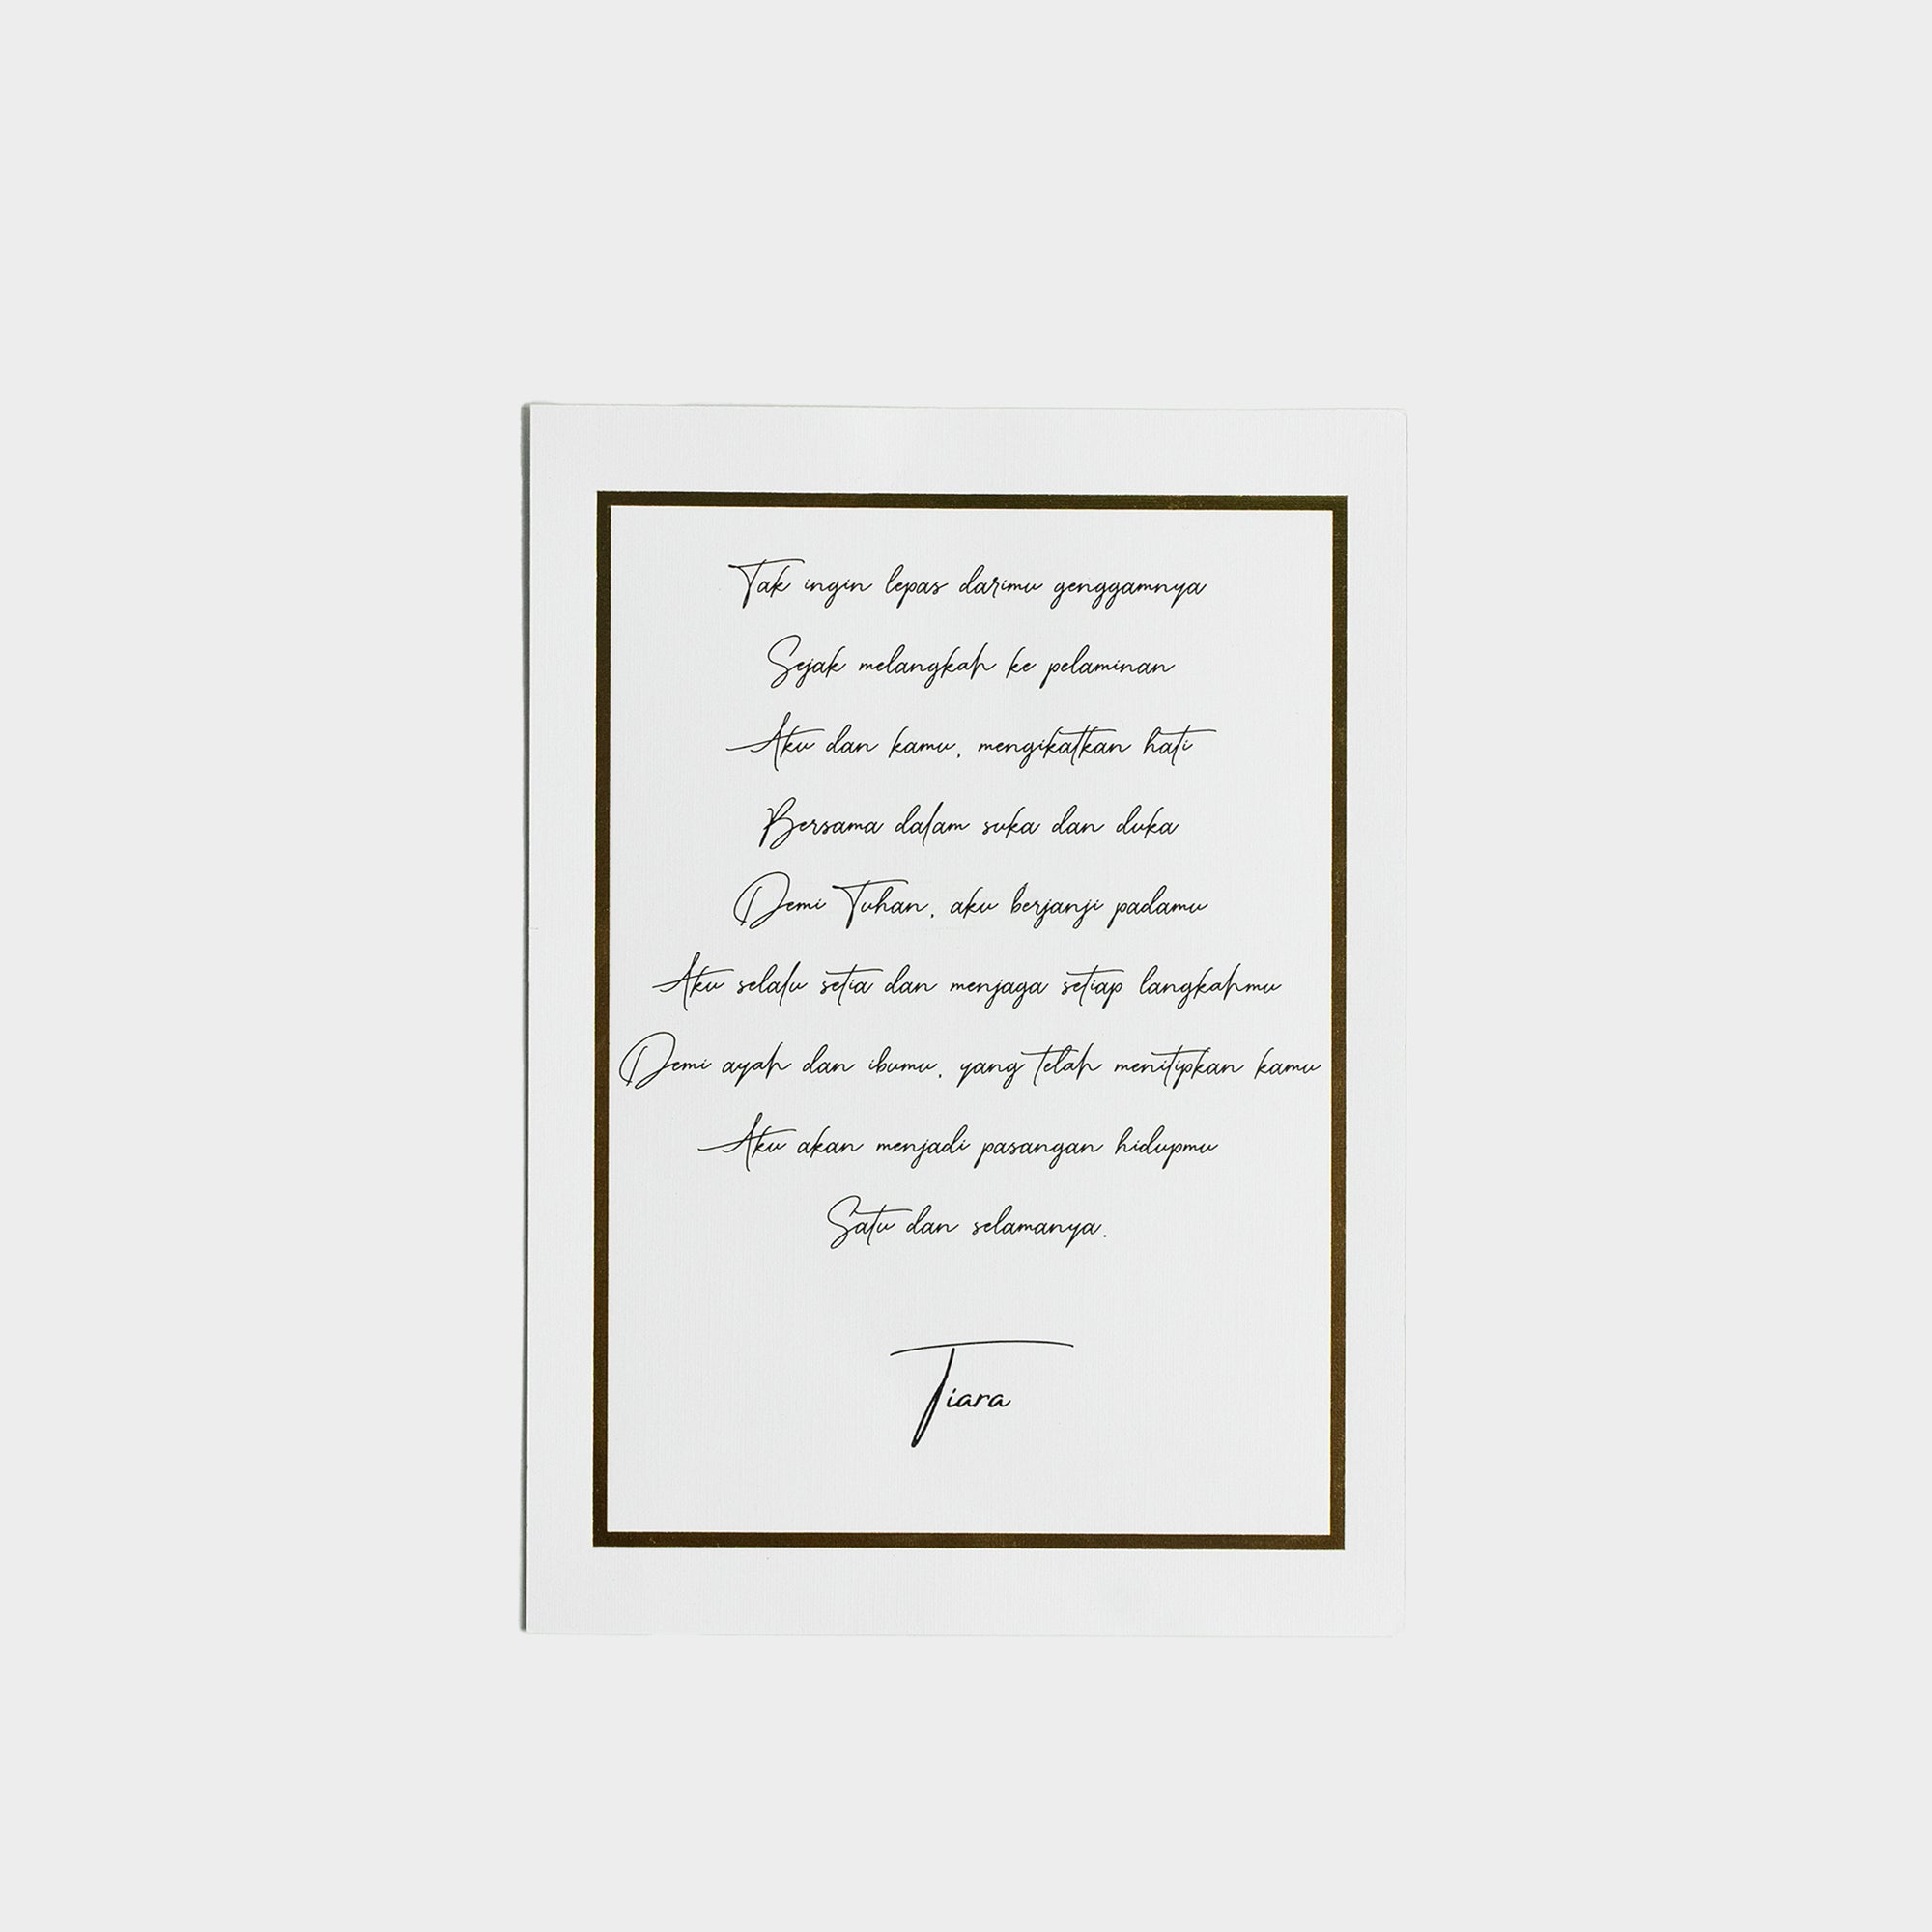 Tak ingin lepas darimu genggamnya
Sejak melangkah ke pelaminan
Aku dan kamu, mengikatkan hati
Bersama dalam suka dan duka
Demi Tuhan, aku berjanji padamu
Aku selalu setia dan menjaga setiap langkahmu
Demi ayah dan ibumu, yang telah menitipkan kamu
Aku akan menjadi pasangan hidupmu
Satu dan selamanya.
Tiara